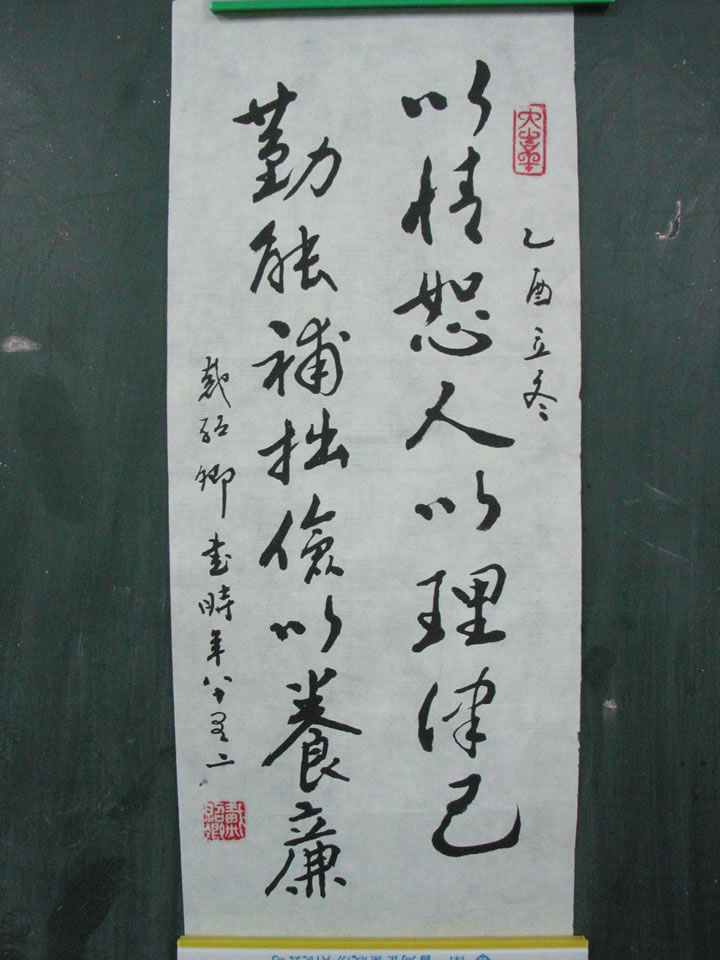 乙酉立冬
以情恕人以理律己
勤能補拙儉以養廉
戴紹卿書時年八十有二
戴紹卿